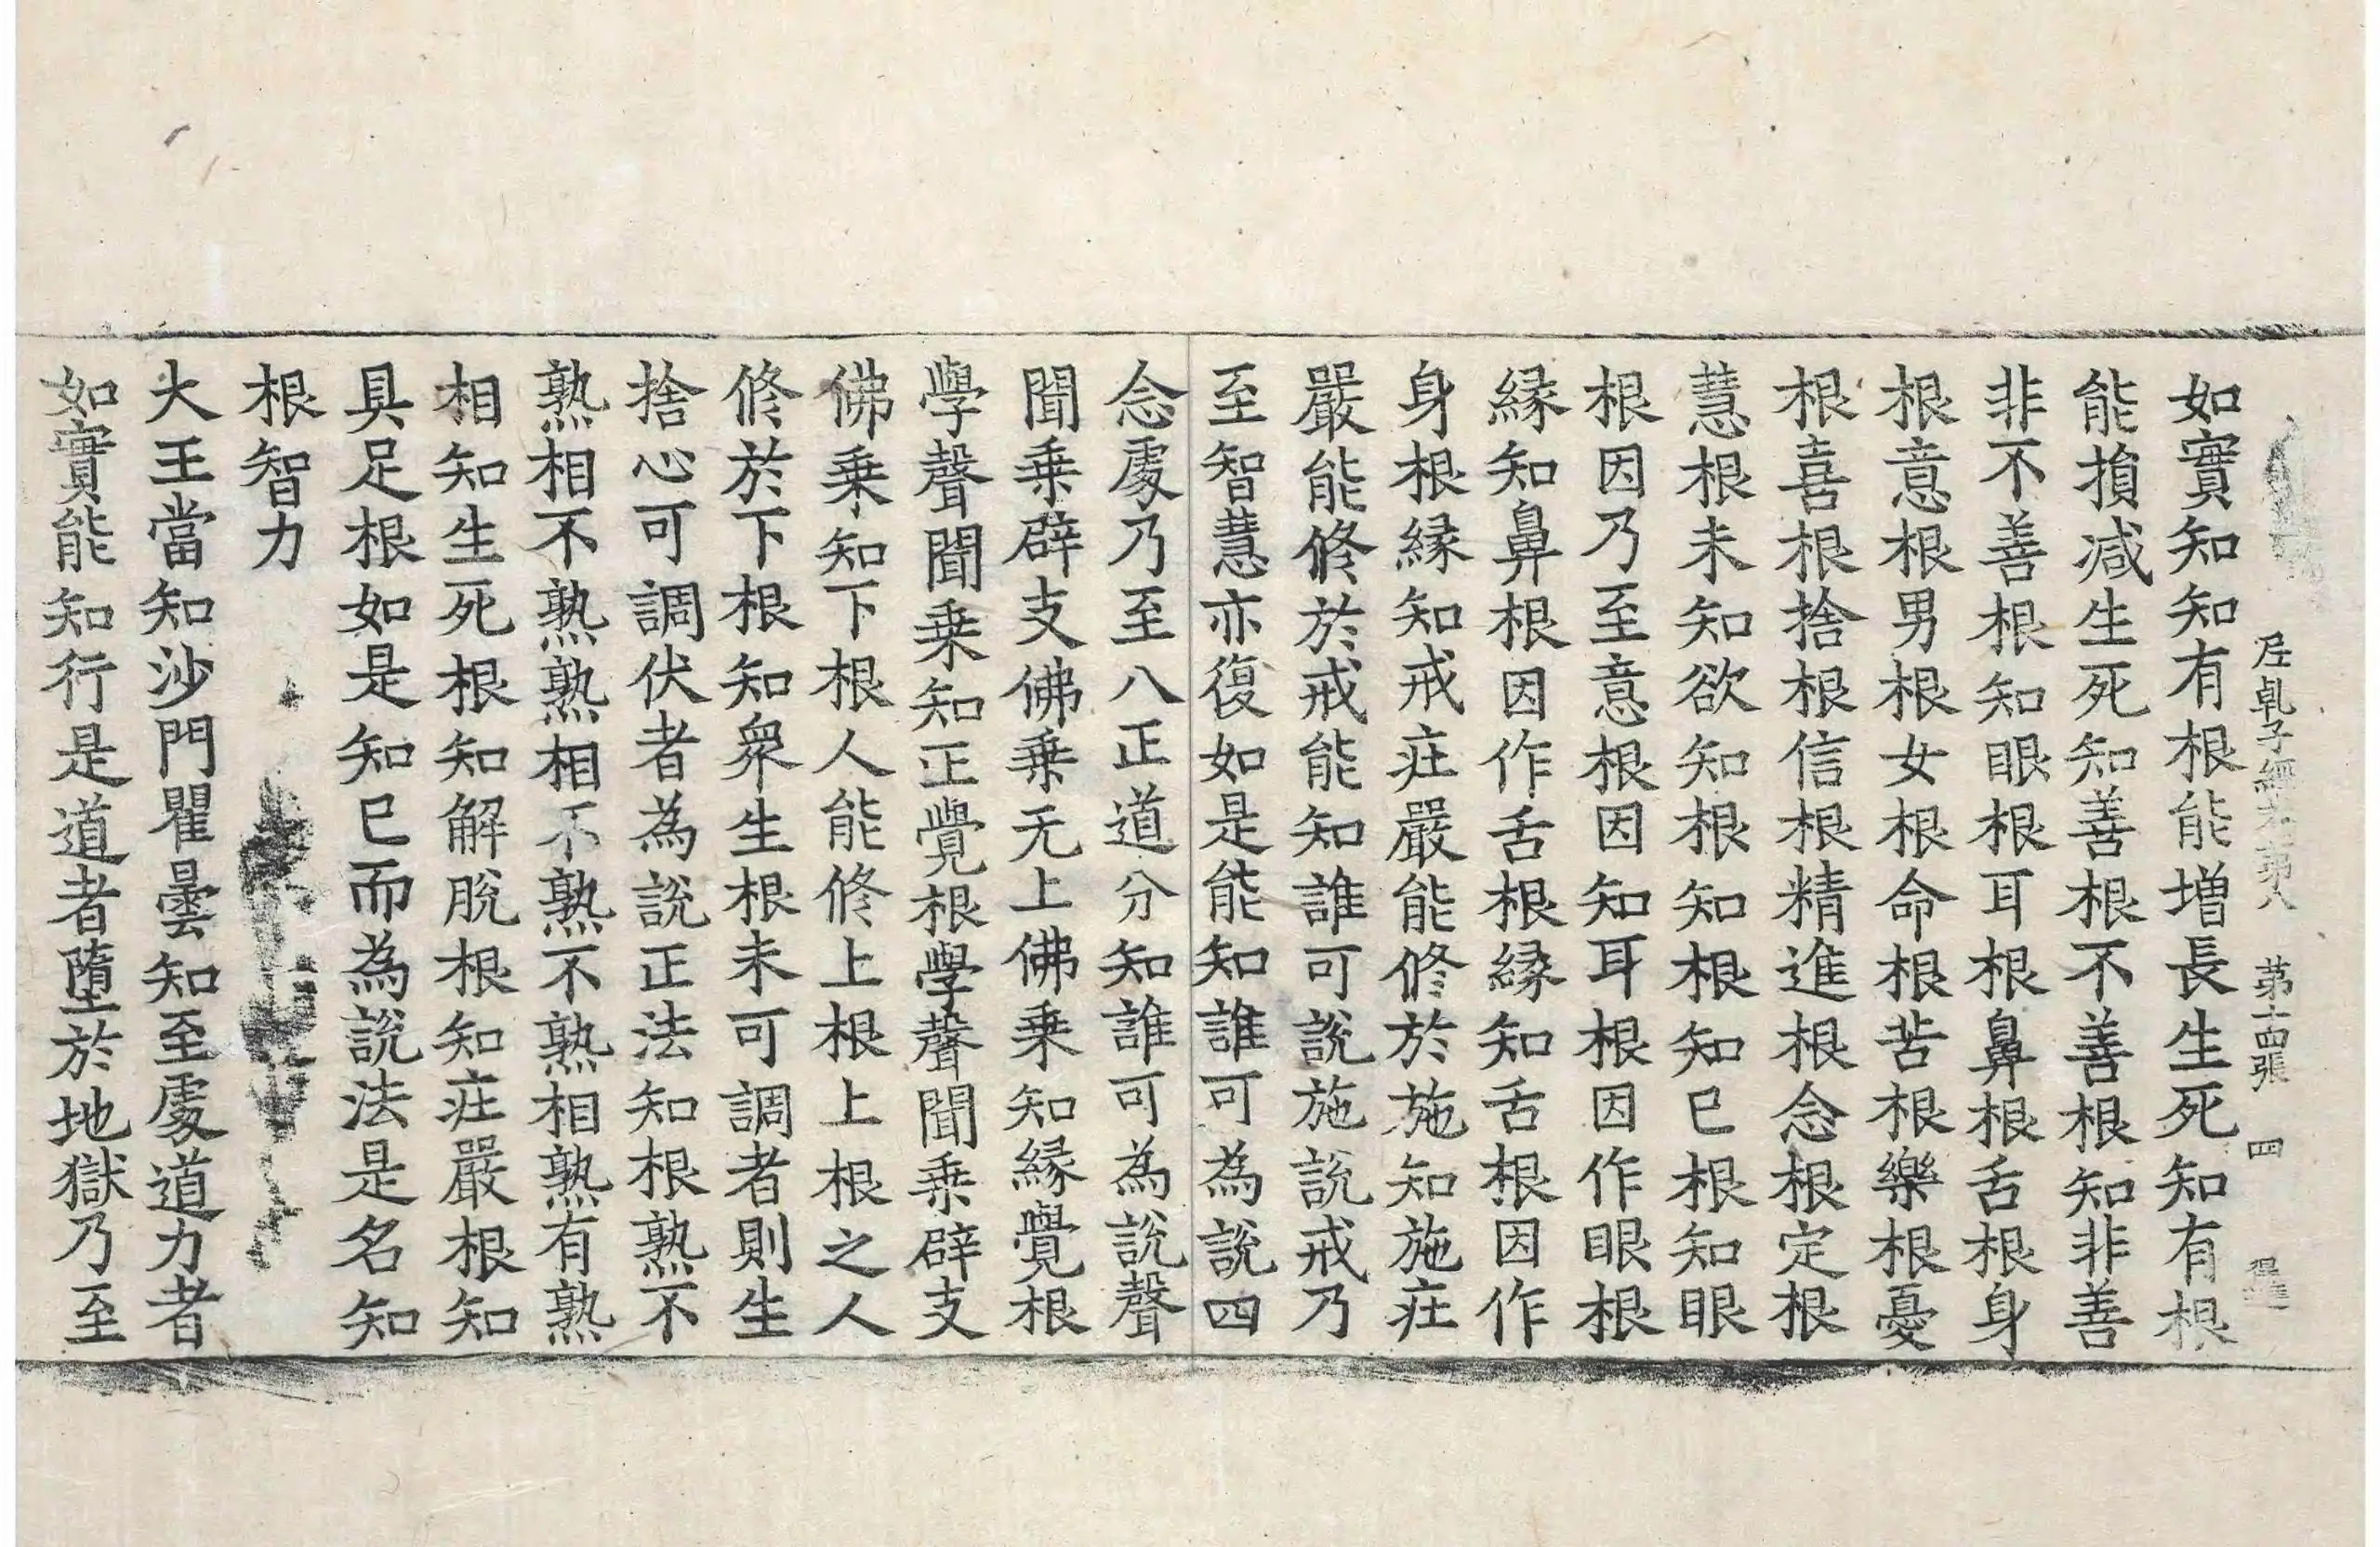 尼乹子經卷第八　第十四張　四
如實知知有根能增長生死知有根
能損減生死知善根不善根知非善
非不善根知眼根耳根鼻根舌根身
根意根男根女根命根苦根樂根憂
根喜根捨根信根精進根念根定根
慧根未知欲知根知根知已根知眼
根因乃至意根因知耳根因作眼根
緣知鼻根因作舌根緣知舌根因作
身根緣知戒莊嚴能修於施知施莊
嚴能修於戒能知誰可說施說戒乃
至智慧亦復如是能知誰可為說四
念處乃至八正道分知誰可為說聲
聞乗辟支佛乗无上佛乗知緣覺根
學聲聞乗知正覺根學聲聞乗辟支
佛乗知下根人能修上根上根之人
修於下根知衆生根未可調者則生
捨心可調伏者為說正法知根熟不
熟相不熟熟相不熟不熟相熟有熟
相知生死根知解脫根知莊嚴根知
具足根如是知已而為說法是名知
根智力
大王當知沙門瞿曇知至處道力者
如實能知行是道者墮於地獄乃至